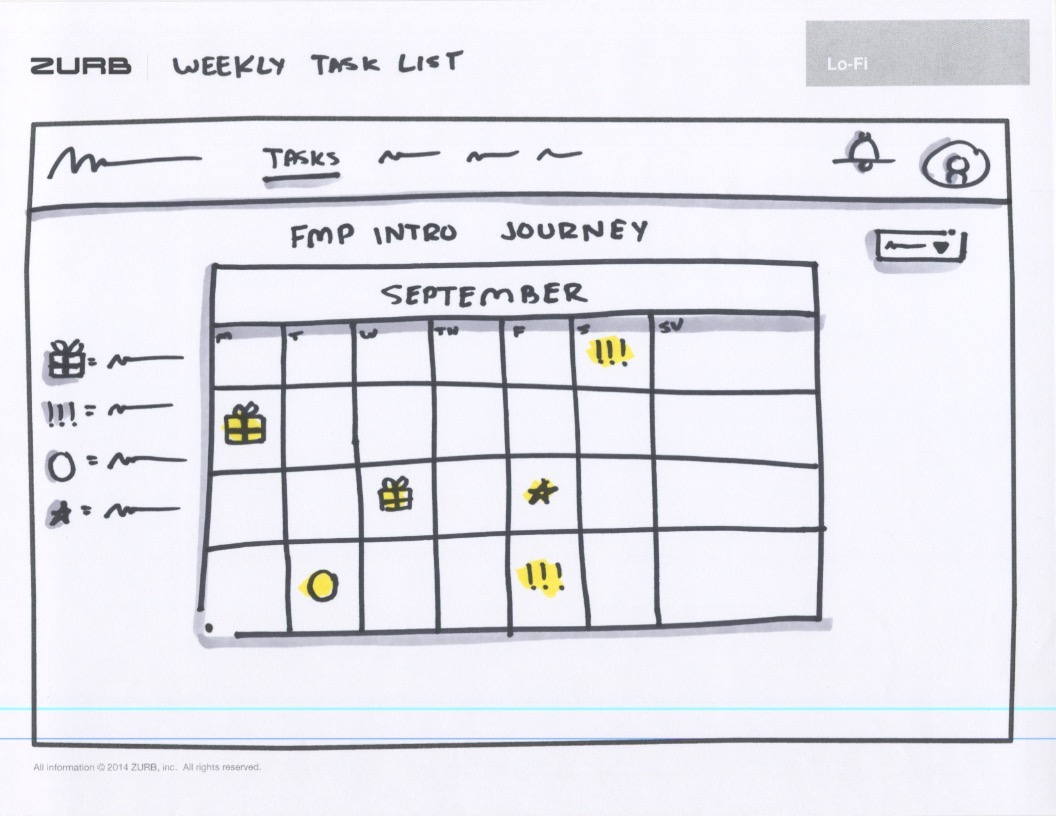 ZURB WEEKLY TASK LIST
Lo-Fi
TASKS
FMP INTRO JOURNEY
SEPTEMBER
M T W TH F S SU
!!!
!!! =
=
=
=
!!!
All information © 2014 ZURB, inc. All rights reserved.